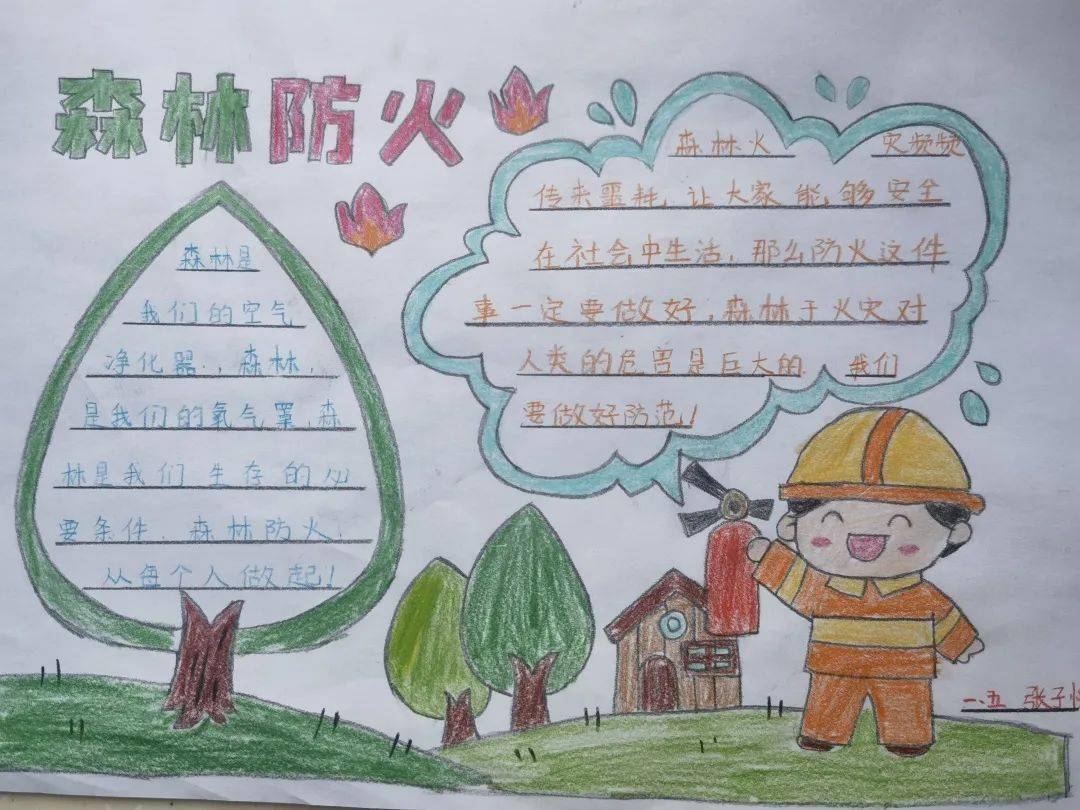 森林防火
森林是
我们的空气
净化器.，森林，
是我们的氧气罩，森
林是我们生存的必
要条件．森林防火．
从每个人做起！
森林火 灾频频
传来噩耗，让大家能，够安全
在社会中生活，那么防火这件
事一定要做好，森林于火灾对
人类的危害是巨大的．我们
要做好防范！
一.五 张子